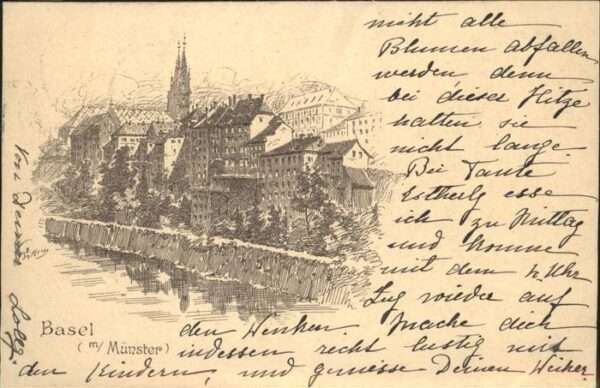 nicht alle
Blumen abfallen
werden, denn
bei dieser Hitze
halten sie
nicht lange.
Bei Tante
esse
ich zu Mittag
und komme
mit dem Uhr
Zug wieder auf
den Wenken. Mache dich
indessen recht lustig mit
den Kindern, und geniesse Deinen Weiher.
Von Deiner
Basel
(m/ Münster)